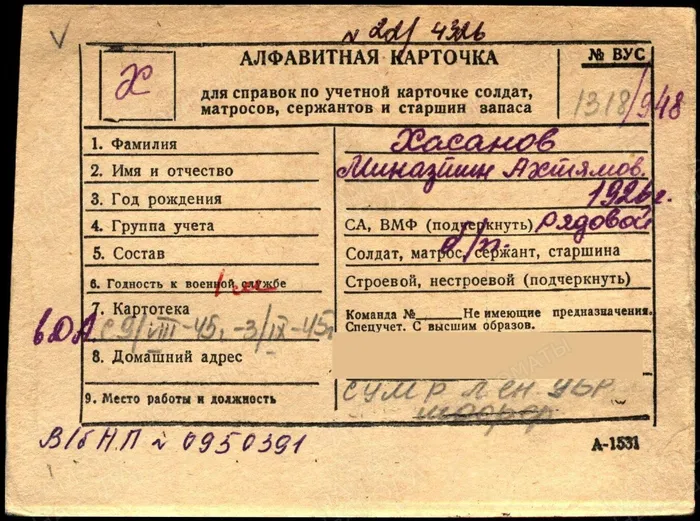 № 221/4326
АЛФАВИТНАЯ КАРТОЧКА
№ ВУС
Х
для справок по учетной карточке солдат,
матросов, сержантов и старшин запаса
1318/948
1. Фамилия Хасанов
2. Имя и отчество Миназтин Ахтямов.
3. Год рождения 1926г.
4. Группа учета СА, ВМФ (подчеркнуть) Рядовой
5. Состав Солдат, матрос, сержант, старшина
6. Годность к военной службе Строевой, нестроевой (подчеркнуть)
7. Картотека Команда № Не имеющие предназначения.
Спецучет. С высшим образов.
в ДА с 9/VIII-45, -3/IX-45г
8. Домашний адрес
9. Место работы и должность СУМР Лен. УБР
В/б НП № 0950391
А-1531